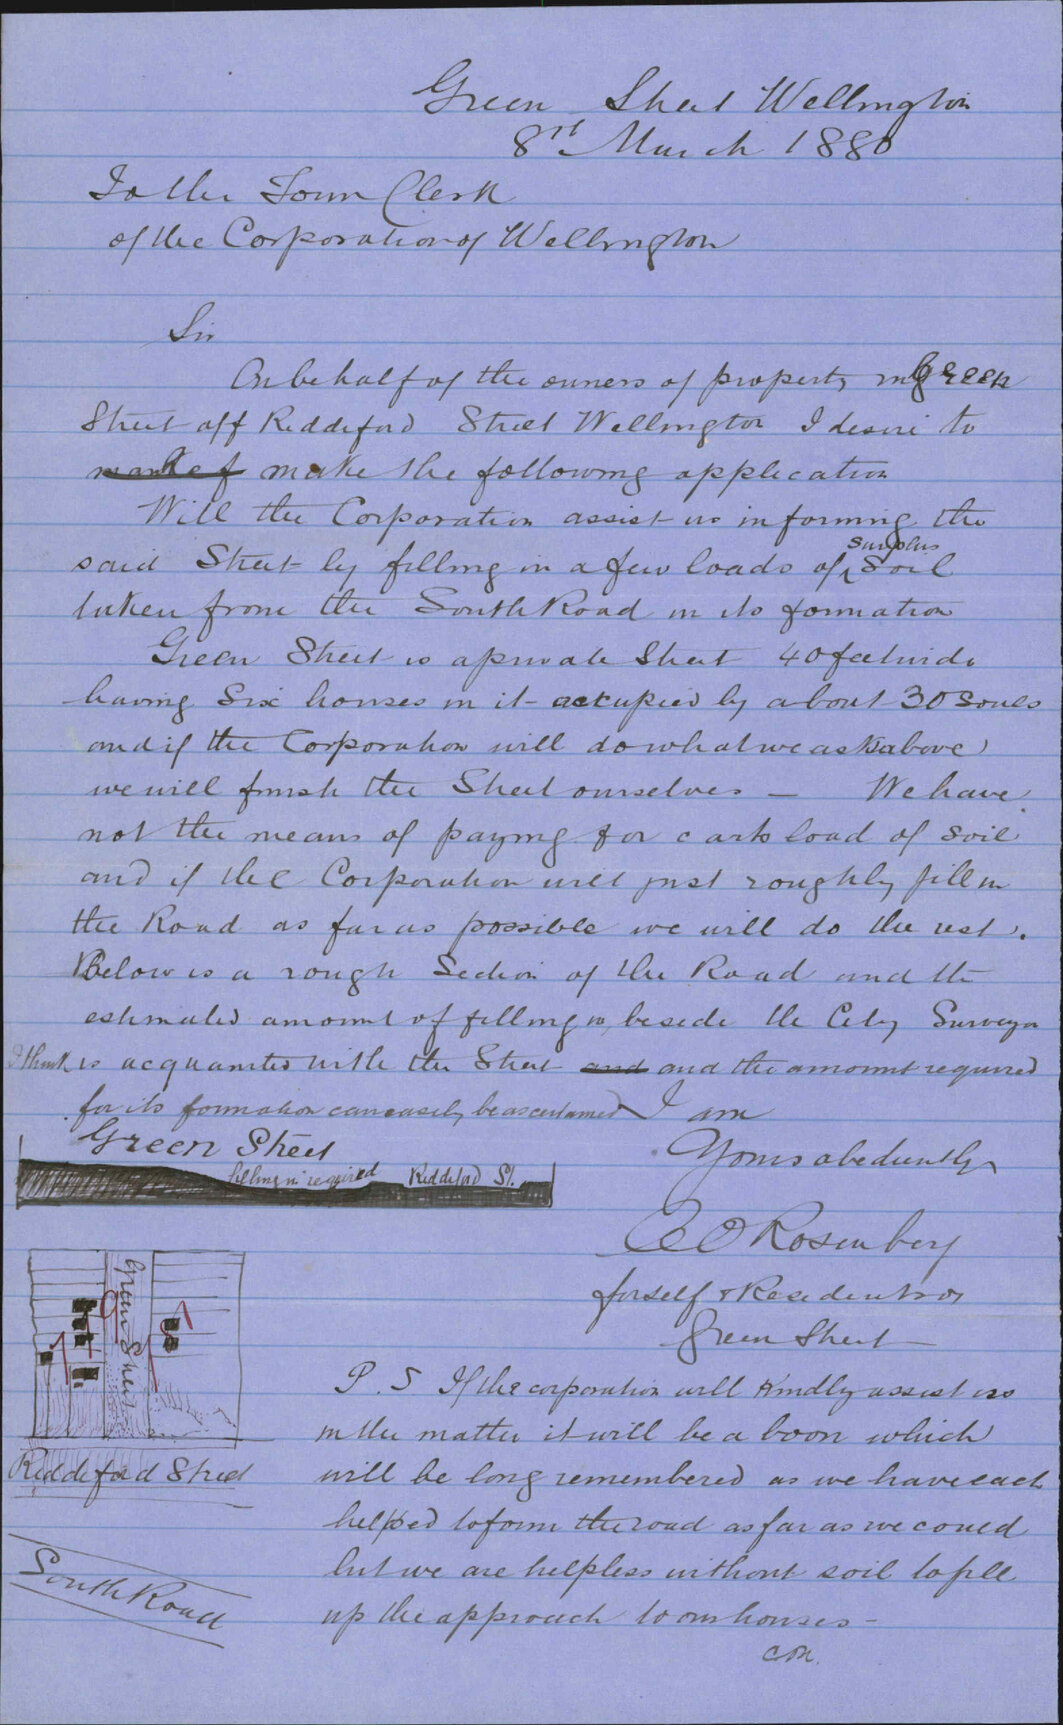 Green Street Wellington
8th March 1880
To the Town Clerk
of the Corporation of Wellington
Sir
On behalf of the owners of property in Green
Street off Riddiford Street Wellington I desire to
make the following application
Will the Corporation assist us in forming the
surplus
said Street by filling in a few loads of soil
taken from the South Road in its formation
Green Street is a private Street 40 feet wide
having Six houses in it occupied by about 30 Souls
and if the Corporation will do what we ask above
we will finish the Street ourselves — We have
not the means of paying for carts load of soil
and if the Corporation will just roughly fill in
the Road as far as possible we will do the rest.
Below is a rough Section of the Road and the
estimated amount of filling in, beside the City Surveyor
I think is acquainted with the Street and and the amount required
for its formation can easily be ascertained I am
Green Street
filling in required Riddiford St.
Yours obediently
E O Rosenberg
for self & Residents of
Green Street
Green Street
Riddeford Street
South Road
P.S If the corporation will kindly assist us
in the matter it will be a boon which
will be long remembered as we have each
helped to form the road as far as we could
but we are helpless without soil to fill
up the approach to our houses —